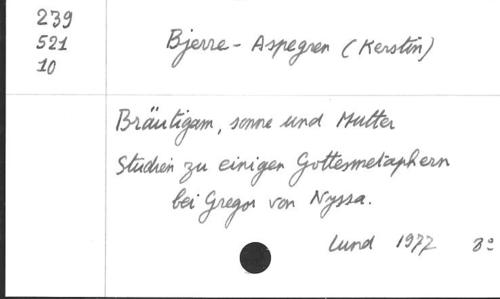 239
521
10
Bjerre-Aspegren (Kerstin)
Bräutigam, sonne und Mutter
Studien zu einigen Gottesmetaphern
bei Gregor von Nyssa.
Lund 1977 8°